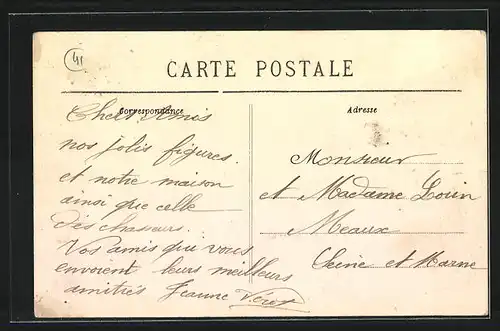 41
CARTE POSTALE
Correspondance
Adresse
Chers Amis
nos jolis figures.
et notre maison
ainsi que celle
des chasseurs.
Vos amis que vous
envoient leurs meilleurs
amitiés Jeanne
Monsieur
et Madame
Meaux
Seine et Marne